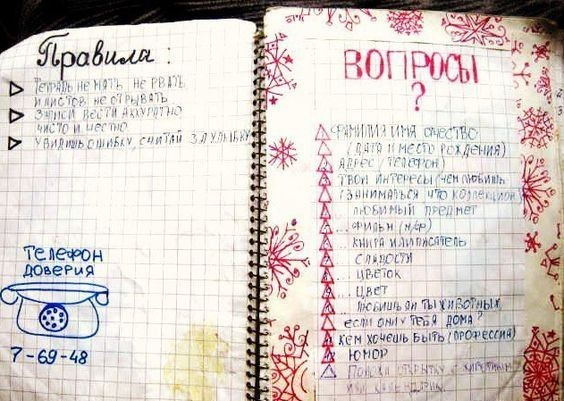 Правила:
Тетрадь не мять, не рвать
и листов не отрывать
Записи вести аккуратно
чисто и честно.
Увидишь ошибку, считай за улыбку
Телефон
доверия
7-69-48
ВОПРОСЫ
?
Фамилия имя отчество
(дата и место рождения)
Адрес (телефон)
Твои интересы (чем любишь
заниматься что коллекцион)
любимый предмет
...фильм (м/ф)
... книга или писатель
... сладости
... цветок
... цвет
любишь ли ты животных,
если они у тебя дома?
Кем хочешь быть (профессия)
Юмор
открытку с животным
или календарик.